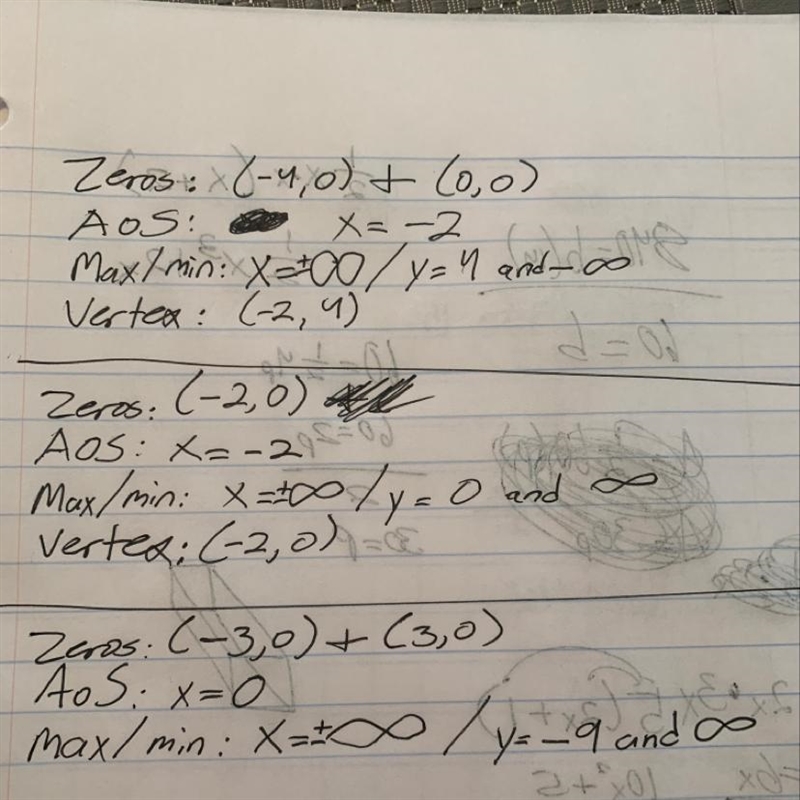 Zeros: (-4,0) + (0,0)
AoS: x = -2
Max/min: x=±∞ / y=4 and -∞
Vertex: (-2, 4)
Zeros: (-2,0)
AoS: x = -2
Max/min: x=±∞ / y = 0 and ∞
Vertex: (-2,0)
Zeros: (-3,0) + (3,0)
AoS: x=0
Max/min: x=±∞ / y=-9 and ∞